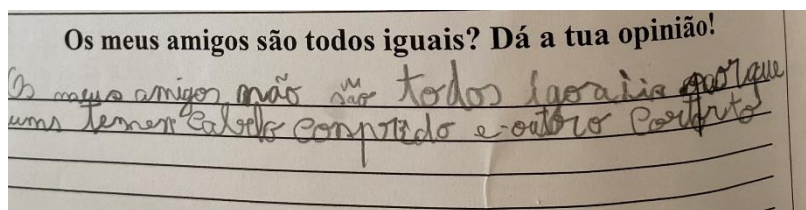 Os meus amigos são todos iguais? Dá a tua opinião!
Os meus amigos não são todos igoaiis porque
ums temen cabelo conprido e outro corto